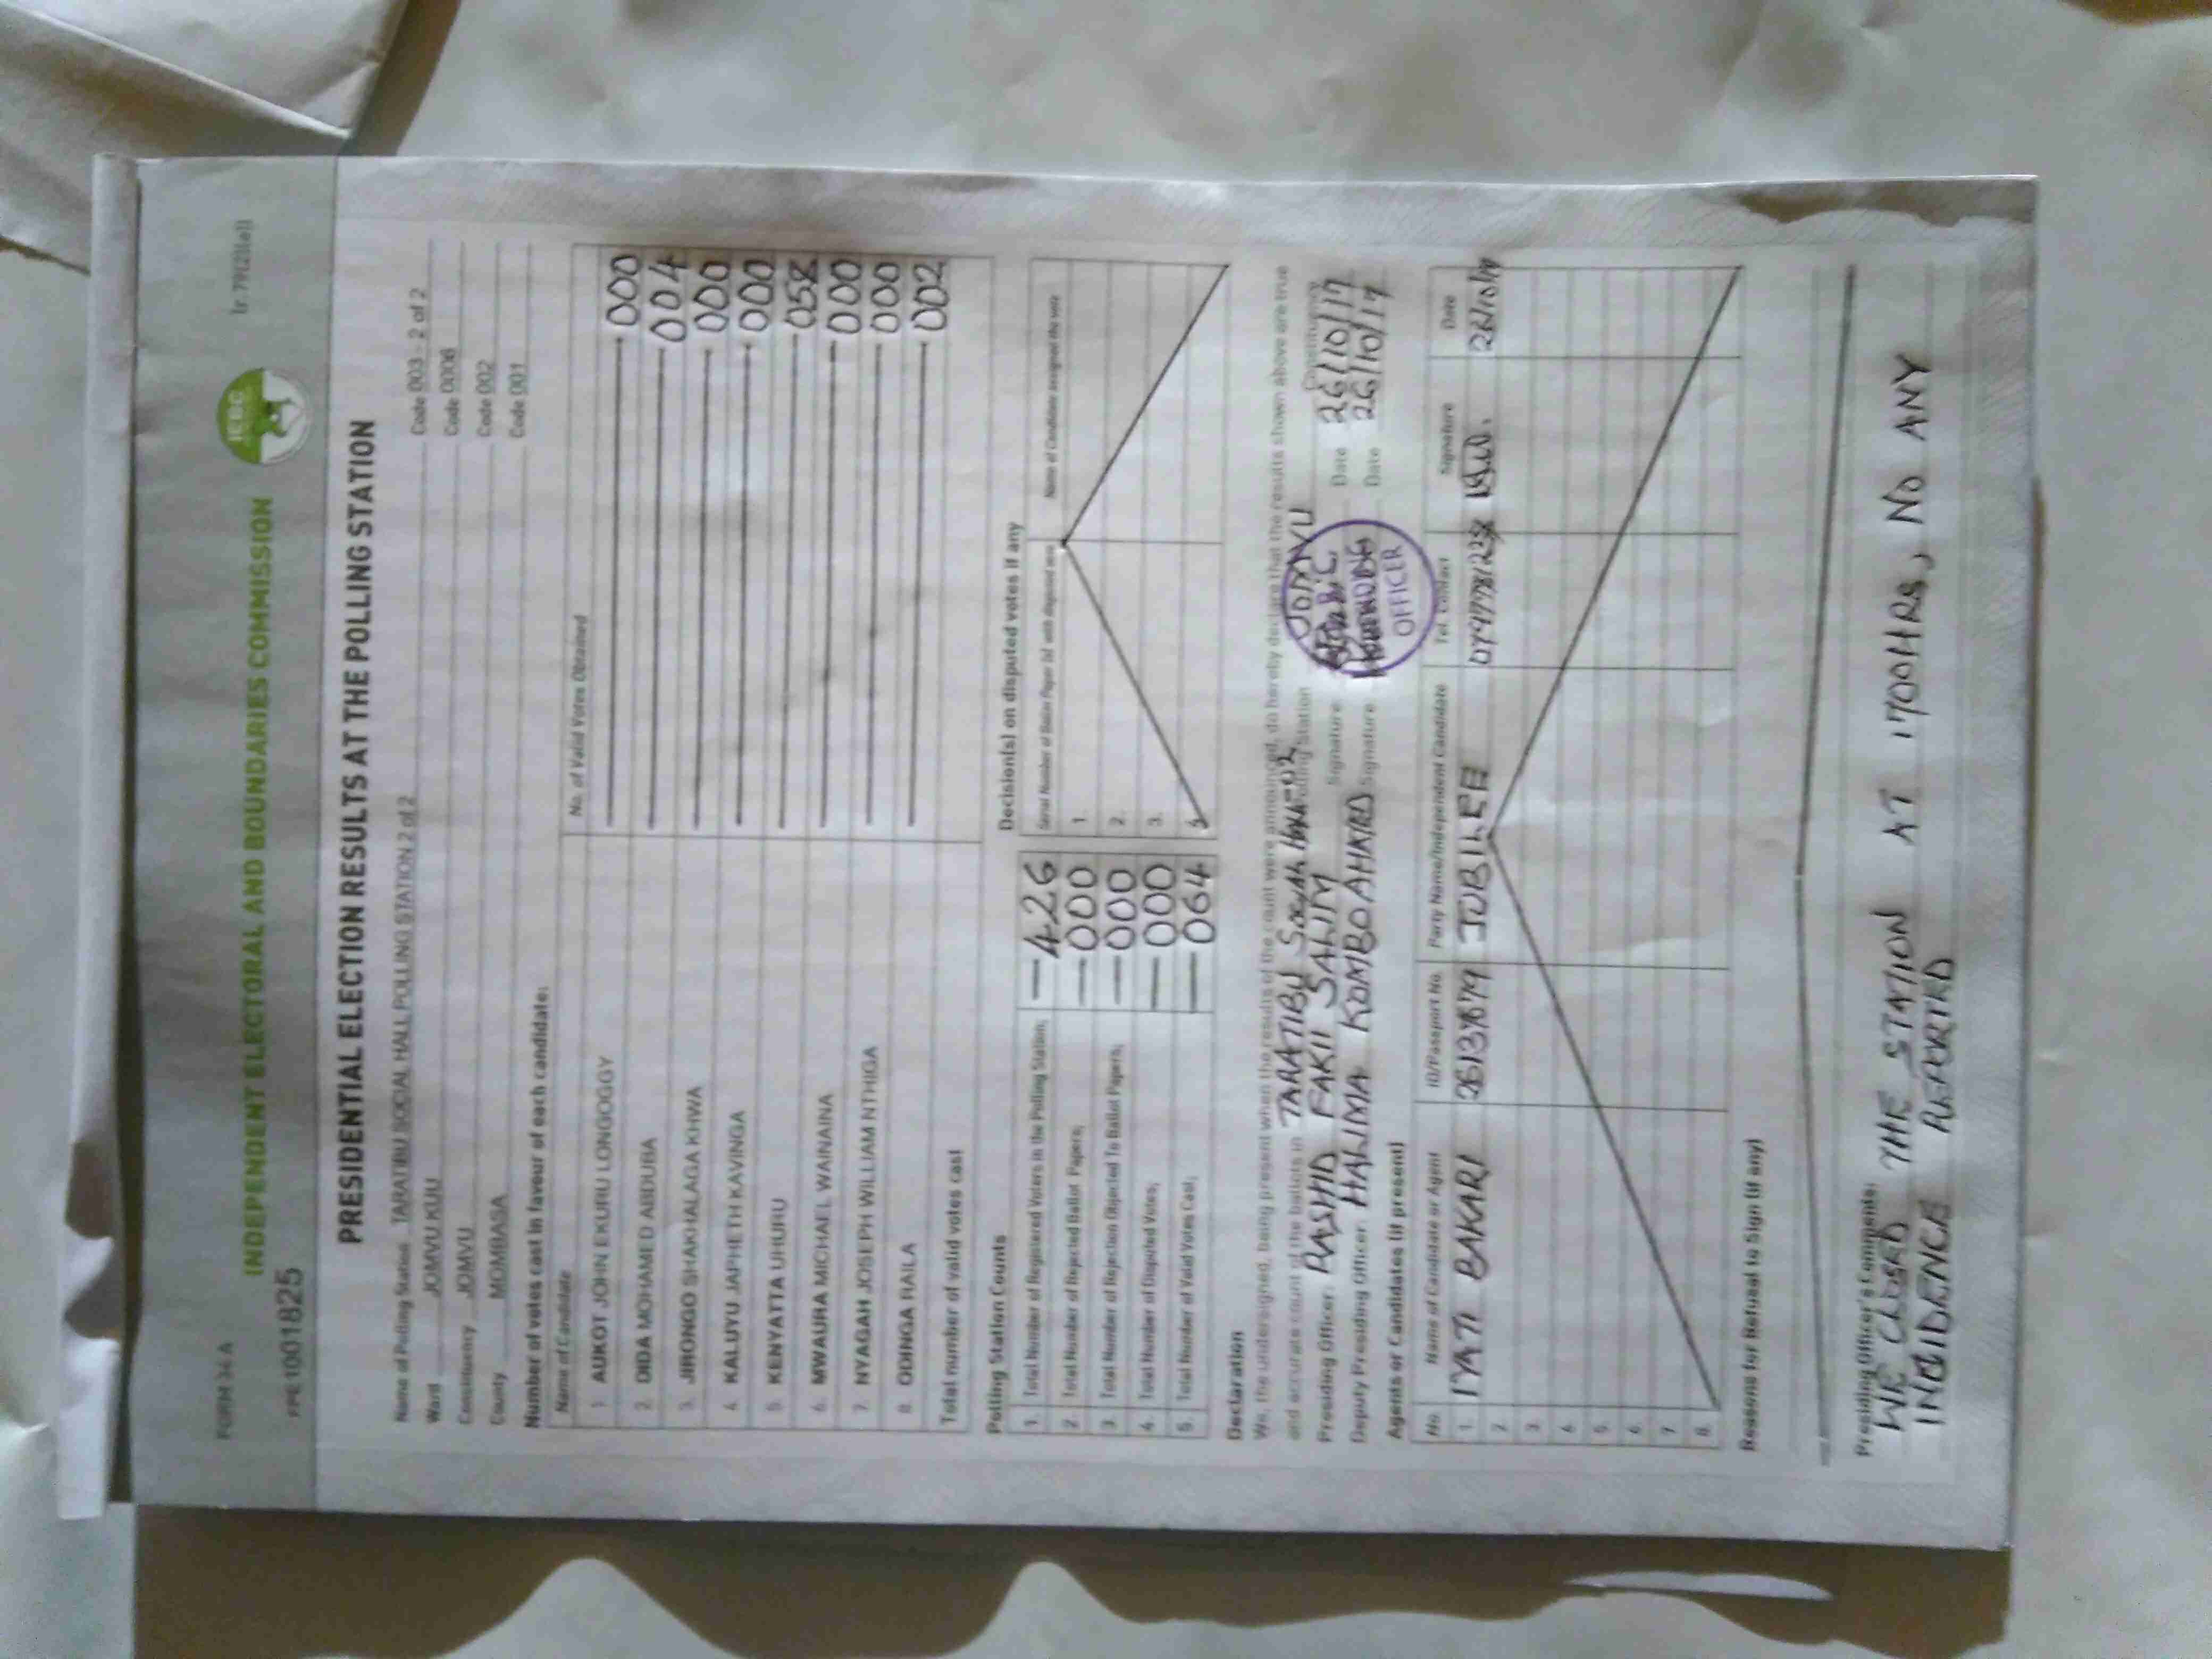 FORM 34 A
(r. 79(2)(a))
INDEPENDENT ELECTORAL AND BOUNDARIES COMMISSION
IEBC
PRE1001825
PRESIDENTIAL ELECTION RESULTS AT THE POLLING STATION
Name of Polling Station TARATIBU SOCIAL HALL POLLING STATION 2 of 2 Code 003 - 2 of 2
Ward JOMVU KUU Code 0006
Constituency JOMVU Code 002
County MOMBASA Code 001
Number of votes cast in favour of each candidate:
Name of Candidate No. of Valid Votes Obtained
1. AUKOT JOHN EKURU LONGOGGY 000
2. DIDA MOHAMED ABDUBA 004
3. JIRONGO SHAKHALAGA KHWA 000
4. KALUYU JAPHETH KAVINGA 000
5. KENYATTA UHURU 058
6. MWAURA MICHAEL WAINAINA 000
7. NYAGAH JOSEPH WILLIAM NTHIGA 000
8. ODINGA RAILA 002
Total number of valid votes cast
Polling Station Counts
1. Total Number of Registered Voters in the Polling Station; 426
2. Total Number of Rejected Ballot Papers; 000
3. Total Number of Rejection Objected To Ballot Papers; 000
4. Total Number of Disputed Votes; 000
5. Total Number of Valid Votes Cast; 064
Decision(s) on disputed votes if any
Serial Number of Ballot Paper (s) with disputed votes Name of Candidate assigned the vote
1.
2.
3.
4.
Declaration
We, the undersigned, being present when the results of the count were announced, do hereby declare that the results shown above are true
and accurate count of the ballots in TARATIBU SOCIAL HALL-02 Polling Station JOMVU Constituency
Presiding Officer: RASHID FAKII SALIM Signature Date 26/10/17
Deputy Presiding Officer: HALIMA KOMBO AHMED Signature Date 26/10/17
OFFICER
Agents or Candidates (if present)
No. Name of Candidate or Agent ID/Passport No. Party Name/Independent Candidate Tel. Contact Signature Date
1. IYATI BAKARI JUBILEE 26/10/17
2.
3.
4.
5.
6.
7.
8.
Reasons for Refusal to Sign (if any)
Presiding Officer's Comments:
WE CLOSED THE STATION AT 1700HRS, NO ANY
INCIDENCE REPORTED